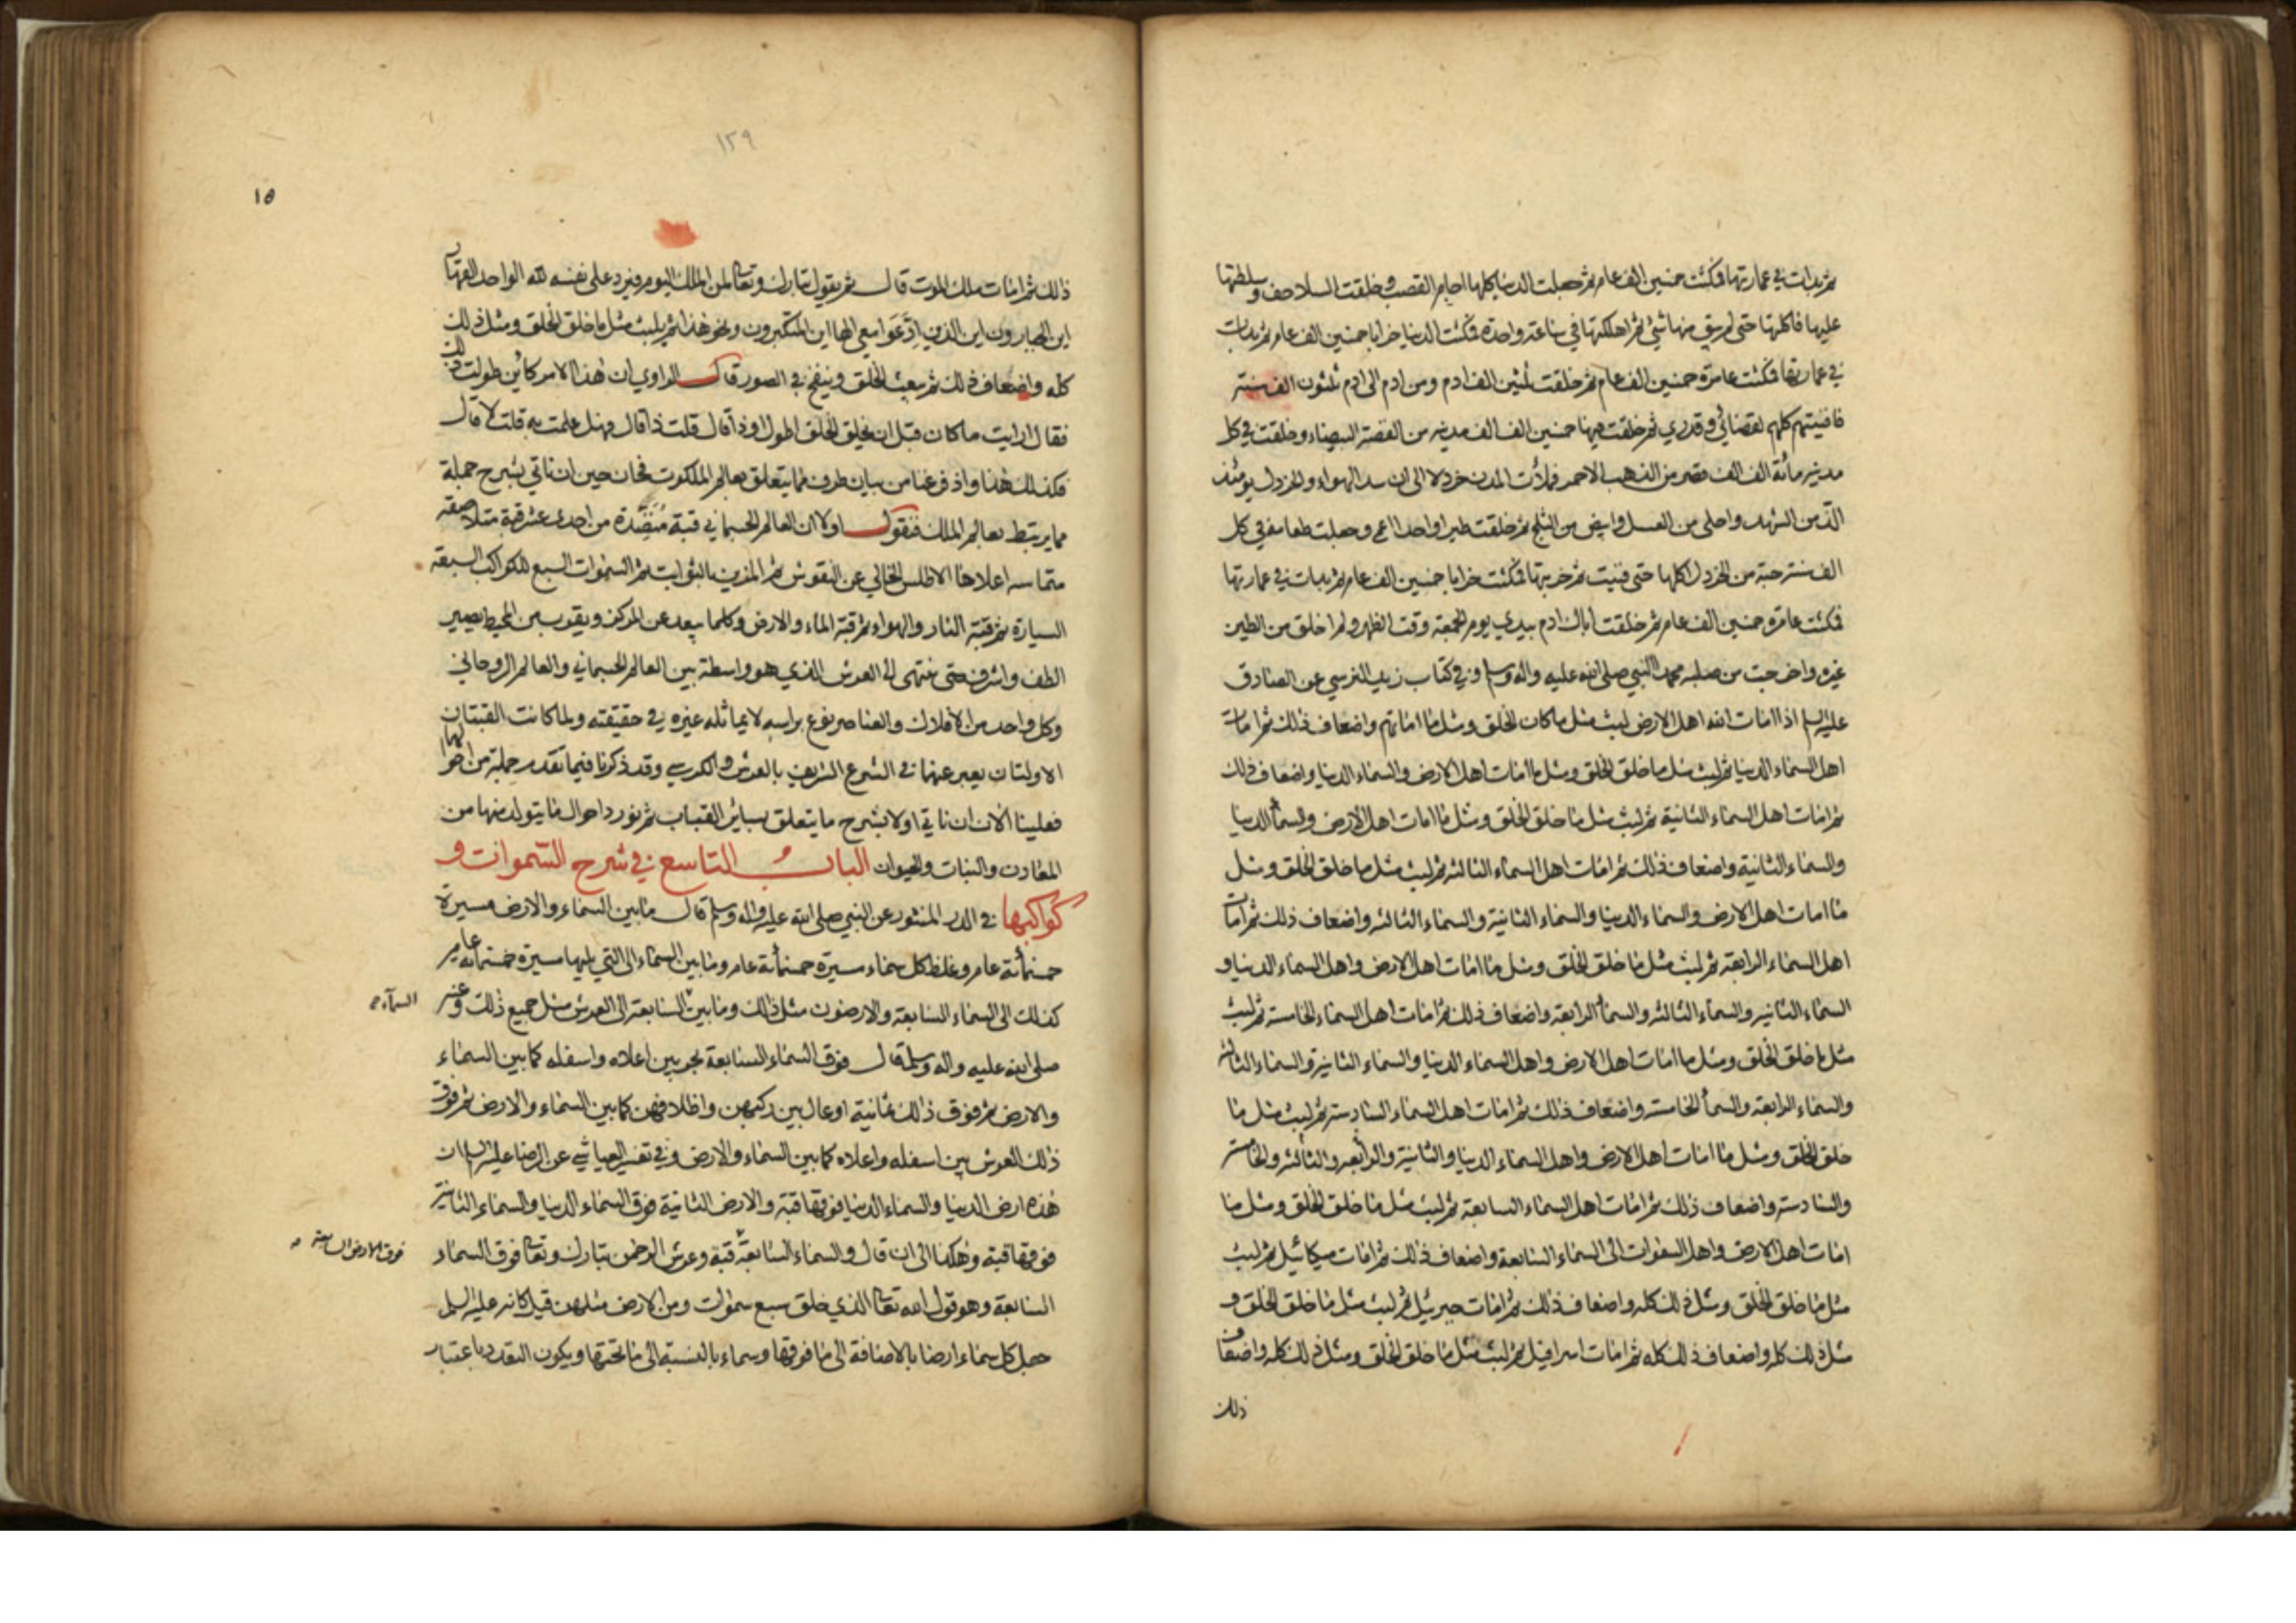 ثم بدات في عمارتها فمكثت خمسين الف عام ثم جعلت الدنيا كلها اجام القصب وخلقت السلاحف وسلطتها
عليها فاكلتها حتى لم يبق منها شئ ثم اهلكتها في ساعة واحدة فمكثت الدنيا خرابا خمسين الف عام ثم بدات
في عمارتها فمكثت عامرة خمسين الف عام ثم خلقت ثلثين الف ادم ومن ادم الى ادم ثلثون الف سنة
فافنيتهم كلهم بقضائي وقدري ثم خلقت فيها خمسين الف الف مدينه من الفضة البيضاء وخلقت في كل
مدينه مائة الف الف قصر من الذهب الاحمر فملات المدن خردلا الى ان سد الهواء والخردل يومئذ
الذ من الشهد واحلى من العسل وابيض من الثلج ثم خلقت طيرا واحدا اعمى وجعلت طعامه في كل
الف سنة حبة من الخردل اكلها حتى فنيت ثم خربتها فمكثت خرابا خمسين الف عام ثم بدات في عمارتها
فمكثت عامرة خمسين الف عام ثم خلقت اباك ادم بيدي يوم الجمعة وقت الظهر ولم اخلق من الطين
غيره واخرجت من صلبه محمدا النبي صلى الله عليه واله وسلم وفي كتاب زيد النرسي عن الصادق
عليه السلم اذا امات الله اهل الارض لبث مثل ما كان الخلق ومثل ما اماتهم واضعاف ذلك ثم امات
اهل السماء الدنيا ثم لبث مثل ما خلق الخلق ومثل ما امات اهل الارض والسماء الدنيا واضعاف ذلك
ثم امات اهل السماء الثانية ثم لبث مثل ما خلق الخلق ومثل ما امات اهل الارض والسماء الدنيا
والسماء الثانية واضعاف ذلك ثم امات اهل السماء الثالثه ثم لبث مثل ما خلق الخلق ومثل
ما امات اهل الارض والسماء الدنيا والسماء الثانية والسماء الثالثه واضعاف ذلك ثم امات
اهل السماء الرابعة ثم لبث مثل ما خلق الخلق ومثل ما امات اهل الارض واهل السماء الدنيا و
السماء الثانيه والسماء الثالثه والسماء الرابعة واضعاف ذلك ثم امات اهل السماء الخامسة ثم لبث
مثل ما خلق الخلق ومثل ما امات اهل الارض واهل السماء الدنيا والسماء الثانية والسماء الثالثه
والسماء الرابعة والسماء الخامسة واضعاف ذلك ثم امات اهل السماء السادسة ثم لبث مثل ما
خلق الخلق ومثل ما امات اهل الارض واهل السماء الدنيا والثانية والرابعه والثالثه والخامسة
والسادسة واضعاف ذلك ثم امات اهل السماء السابعة ثم لبث مثل ما خلق الخلق ومثل ما
امات اهل الارض واهل السموات الى السماء السابعة واضعاف ذلك ثم امات ميكائيل ثم لبث
مثل ما خلق الخلق ومثل ذلك كله واضعاف ذلك ثم امات جبرئيل ثم لبث مثل ما خلق الخلق و
مثل ذلك كله واضعاف ذلك كله ثم امات اسرافيل ثم لبث مثل ما خلق الخلق ومثل ذلك كله واضعاف
ذلك
١٢٩
١٥
ذلك ثم امات ملك الموت قال ثم يقول تبارك وتعالى لمن الملك اليوم فيرد على نفسه لله الواحد القهار
اين الجبارون اين الذين ادعوا معي الها اين المتكبرون ونحو هذا ثم يلبث مثل ما خلق الخلق ومثل ذلك
كله واضعاف ذلك ثم يبعث الخلق وينفخ في الصور قال الراوي ان هذا الامر كائن طولت ذلك
فقال ارايت ما كان قبل ان يخلق الخلق اطول او ذا قال قلت ذا قال فهل علمت به قلت لا قال
فكذلك هذا واذ فرغنا من بيان طرف مما يتعلق بعالم الملكوت فحان حين ان ناتي بشرح جملة
مما يرتبط بعالم الملك فنقول اولا ان العالم الجسماني قبة منضدة من احدى عشر قبة متلاصقة
متماسه اعلاها الاطلس الخالي عن النقوش ثم المزين بالثوابت ثم السموات السبع للكواكب السبعة
السيارة ثم قبة النار والهواء ثم قبة الماء والارض وكلما يبعد عن المركز ويقرب من المحيط يصير
الطف واشرف حتى ينتهى الى العرش الذي هو واسطة بين العالم الجسماني والعالم الروحاني
وكل واحد من الافلاك والعناصر نوع براسه لا يماثله غيره في حقيقته ولما كانت القبتان
الاولتان يعبر عنهما في الشرع الشريف بالعرش والكرسي وقد ذكرنا فيما تقدم جملة من احوالهما
فعلينا الان ان ناتي اولا بشرح ما يتعلق بسائر القباب ثم نورد احوال ما يتولد منها من
المعادن والنبات والحيوان الباب التاسع في شرح السموات و
كواكبها في الدر المنثور عن النبي صلى الله عليه واله وسلم قال ما بين السماء والارض مسيرة
خمسمائة عام وغلظ كل سماء مسيرة خمسمائة عام وما بين السماء الى التي يليها مسيرة خمسمائة عام
كذلك الى السماء السابعة والارضون مثل ذلك وما بين السابعة الى العرش مثل جميع ذلك وعنه
السماء
صلى الله عليه واله وسلم قال فوق السماء السابعة بحر بين اعلاه واسفله كما بين السماء
والارض ثم فوق ذلك ثمانية اوعال بين ركبهن واظلافهن كما بين السماء والارض ثم فوق
ذلك العرش بين اسفله واعلاه كما بين السماء والارض وفي تفسير العياشي عن الرضا عليه السلم ان
هذه ارض الدنيا والسماء الدنيا فوقها قبة والارض الثانية فوق السماء الدنيا والسماء الثانية
فوقها قبة وهكذا الى ان قال والسماء السابعة قبة وعرش الرحمن تبارك وتعالى فوق السماء
فوق الارض السابعة
السابعة وهو قول الله تعالى الذي خلق سبع سموات ومن الارض مثلهن قيل كانه عليه السلم
جعل كل سماء ارضا بالاضافة الى ما فوقها وسماء بالنسبة الى ما تحتها ويكون التعدد باعتبار